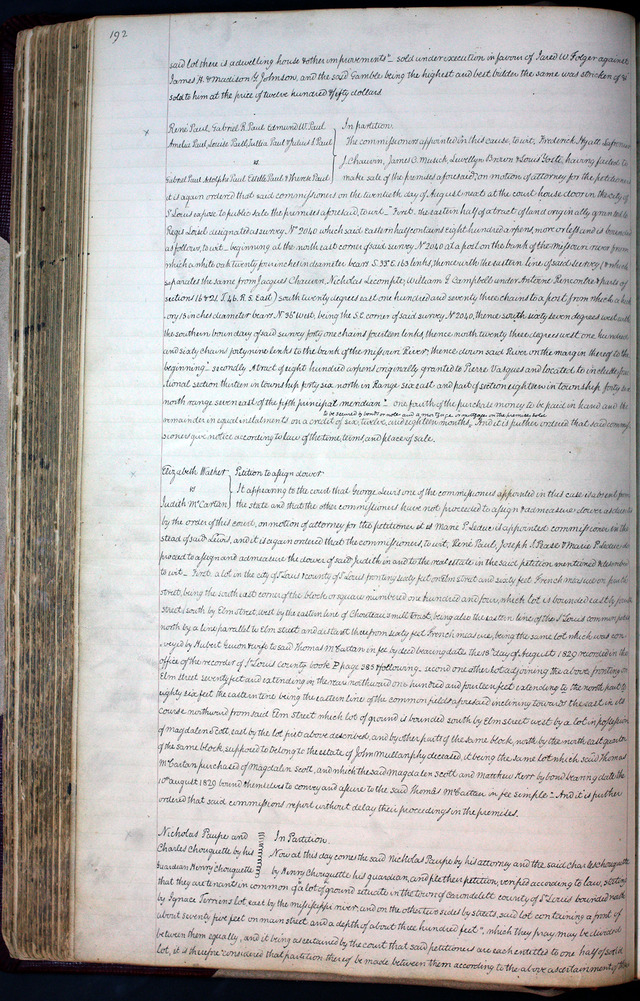 192
said lot there is a dwelling house & other improvements sold under execution in favour of Jared W. Folger against
James H. & Madison Y. Johnson, and the said Gamble being the highest and best bidder the same was stricken off &
sold to him at the price of twelve hundred & fifty dollars
x René Paul, Gabriel R. Paul Edmund W. Paul In partition.
Amelia Paul, Louise Paul & Julius S. Paul The commissioners appointed in this cause, to wit, Frederick Hyatt,
vs J. Chauvin, James C. Musick, Lewellyn Brown & Louis Yosti, having failed to
Gabriel Paul, Adolphe Paul, Estelle Paul & Paul make sale of the premises aforesaid, on motion of attorney for the petitioners
it is again ordered that said commissioners on the twentieth day of August next at the court house door in the city of
St Louis expose to public sale the premises aforesaid, to wit. First. the eastern half of a tract of land originally granted to
Regis Loisel designated as survey No 2040 which said eastern half contains eight hundred arpens more or less and is bounded
as follows, to wit. beginning at the north east corner of said survey No 2040 at a post on the bank of the missouri river from
which a white oak twenty four inches in diameter bears S. 35° E. 163 links, thence with the eastern line of said survey (which
separates the same from Jacques Chauvin, Nicholas Lecompte, William G Campbell under Antoine Rencontre & parts of
sections 16 & 21 T. 46. R. 5. East) south twenty degrees east one hundred and seventy three chains to a post from which a hick
ory 13 inches diameter bears N. 36° West, being the S.E. corner of said survey No 2040, thence south sixty seven degrees west with
the southern boundary of said survey forty one chains fourteen links, thence north twenty three degrees west one hundred
and sixty chains forty nine links to the bank of the missouri River, thence down said River on the margin thereof to the
beginning. secondly A tract of eight hundred arpens originally granted to Pierre Vasques and located to include frac
tional section thirteen in township forty six north in Range six east and part of section eighteen in township forty six
north range seven east of the fifth principal meridian. one fourth of the purchase money to be paid in hand and the
to be secured by bonds or notes and a mortgage or mortgages on the premises sold
remainder in equal instalments on a credit of six, twelve, and eighteen months. And it is further ordered that said commis
sioners give notice according to law of the time, terms, and place of sale.
Elizabeth Walker Petition to assign dower
vs It appearing to the court that George Lewis one of the commissioners appointed in this case is absent from
Judith McCartan the state and that the other commissioners have not proceeded to assign & admeasure dower as directed
by the order of this court, on motion of attorney for the petitioner it is Marie P. Leduc is appointed commissioner in the
stead of said Lewis, and it is again ordered that the commissioners, to wit, René Paul, Joseph S. Pease & Marie P. Leduc do
proceed to assign and admeasure the dower of said Judith in and to the real estate in the said petition mentioned & described
to wit. First. a lot in the city of St Louis & county of St Louis fronting sixty feet on Elm street and sixty feet French measure on fourth
street, being the south east corner of the block or square numbered one hundred and four, which lot is bounded east by fourth
street south by Elm street, west by the eastern line of Chouteau's mill tract, being also the eastern line of the St Louis common fields
north by a line parallel to Elm street and distant therefrom sixty feet French measure, being the same lot which was con
veyed by Hubert Guion & wife to said Thomas McCartan in fee by deed bearing date the 18th day of August 1829 recorded in the
office of the recorder of St Louis county book P page 385 & following. second one other lot adjoining the above, fronting on
Elm street seventy feet and extending in the rear northward one hundred and fourteen feet extending to the north part to
eighty six feet the eastern line being the eastern line of the common fields aforesaid inclining towards the east in its
course northward from said Elm Street which lot of ground is bounded south by Elm street west by a lot in possession
of magdalen Scott, east by the lot first above described, and by other parts of the same block, north by the north east quarter
of the same block, supposed to belong to the estate of John Mullanphy deceased, it being the same lot which said Thomas
McCartan purchased of Magdalen Scott, and which the said Magdalen Scott and Matthew Kerr by bond bearing date the
10th august 1829 bound themselves to convey and assure to the said Thomas McCartan in fee simple. And it is further
ordered that said commissioners report without delay their proceedings in the premises.
Nicholas Paupe and In Partition.
Charles Chouquette by his Now at this day comes the said Nicholas Paupe by his attorney and the said Charles Chouquette
Guardian Henry Chouquette by Henry Chouquette his guardian, and file their petition, verified according to law, stating
that they are tenants in common of a lot of ground situate in the town of Carondelet county of St Louis bounded north
by Ignace Terriens lot, east by the mississippi river, and on the other two sides by streets, said lot containing a front of
about seventy five feet on main street and a depth of about three hundred feet, which they pray may be divided
between them equally, and it being ascertained by the court that said petitioners are each entitled to one half of said
lot, it is therefore considered that partition thereof be made between them according to the above ascertainment of the